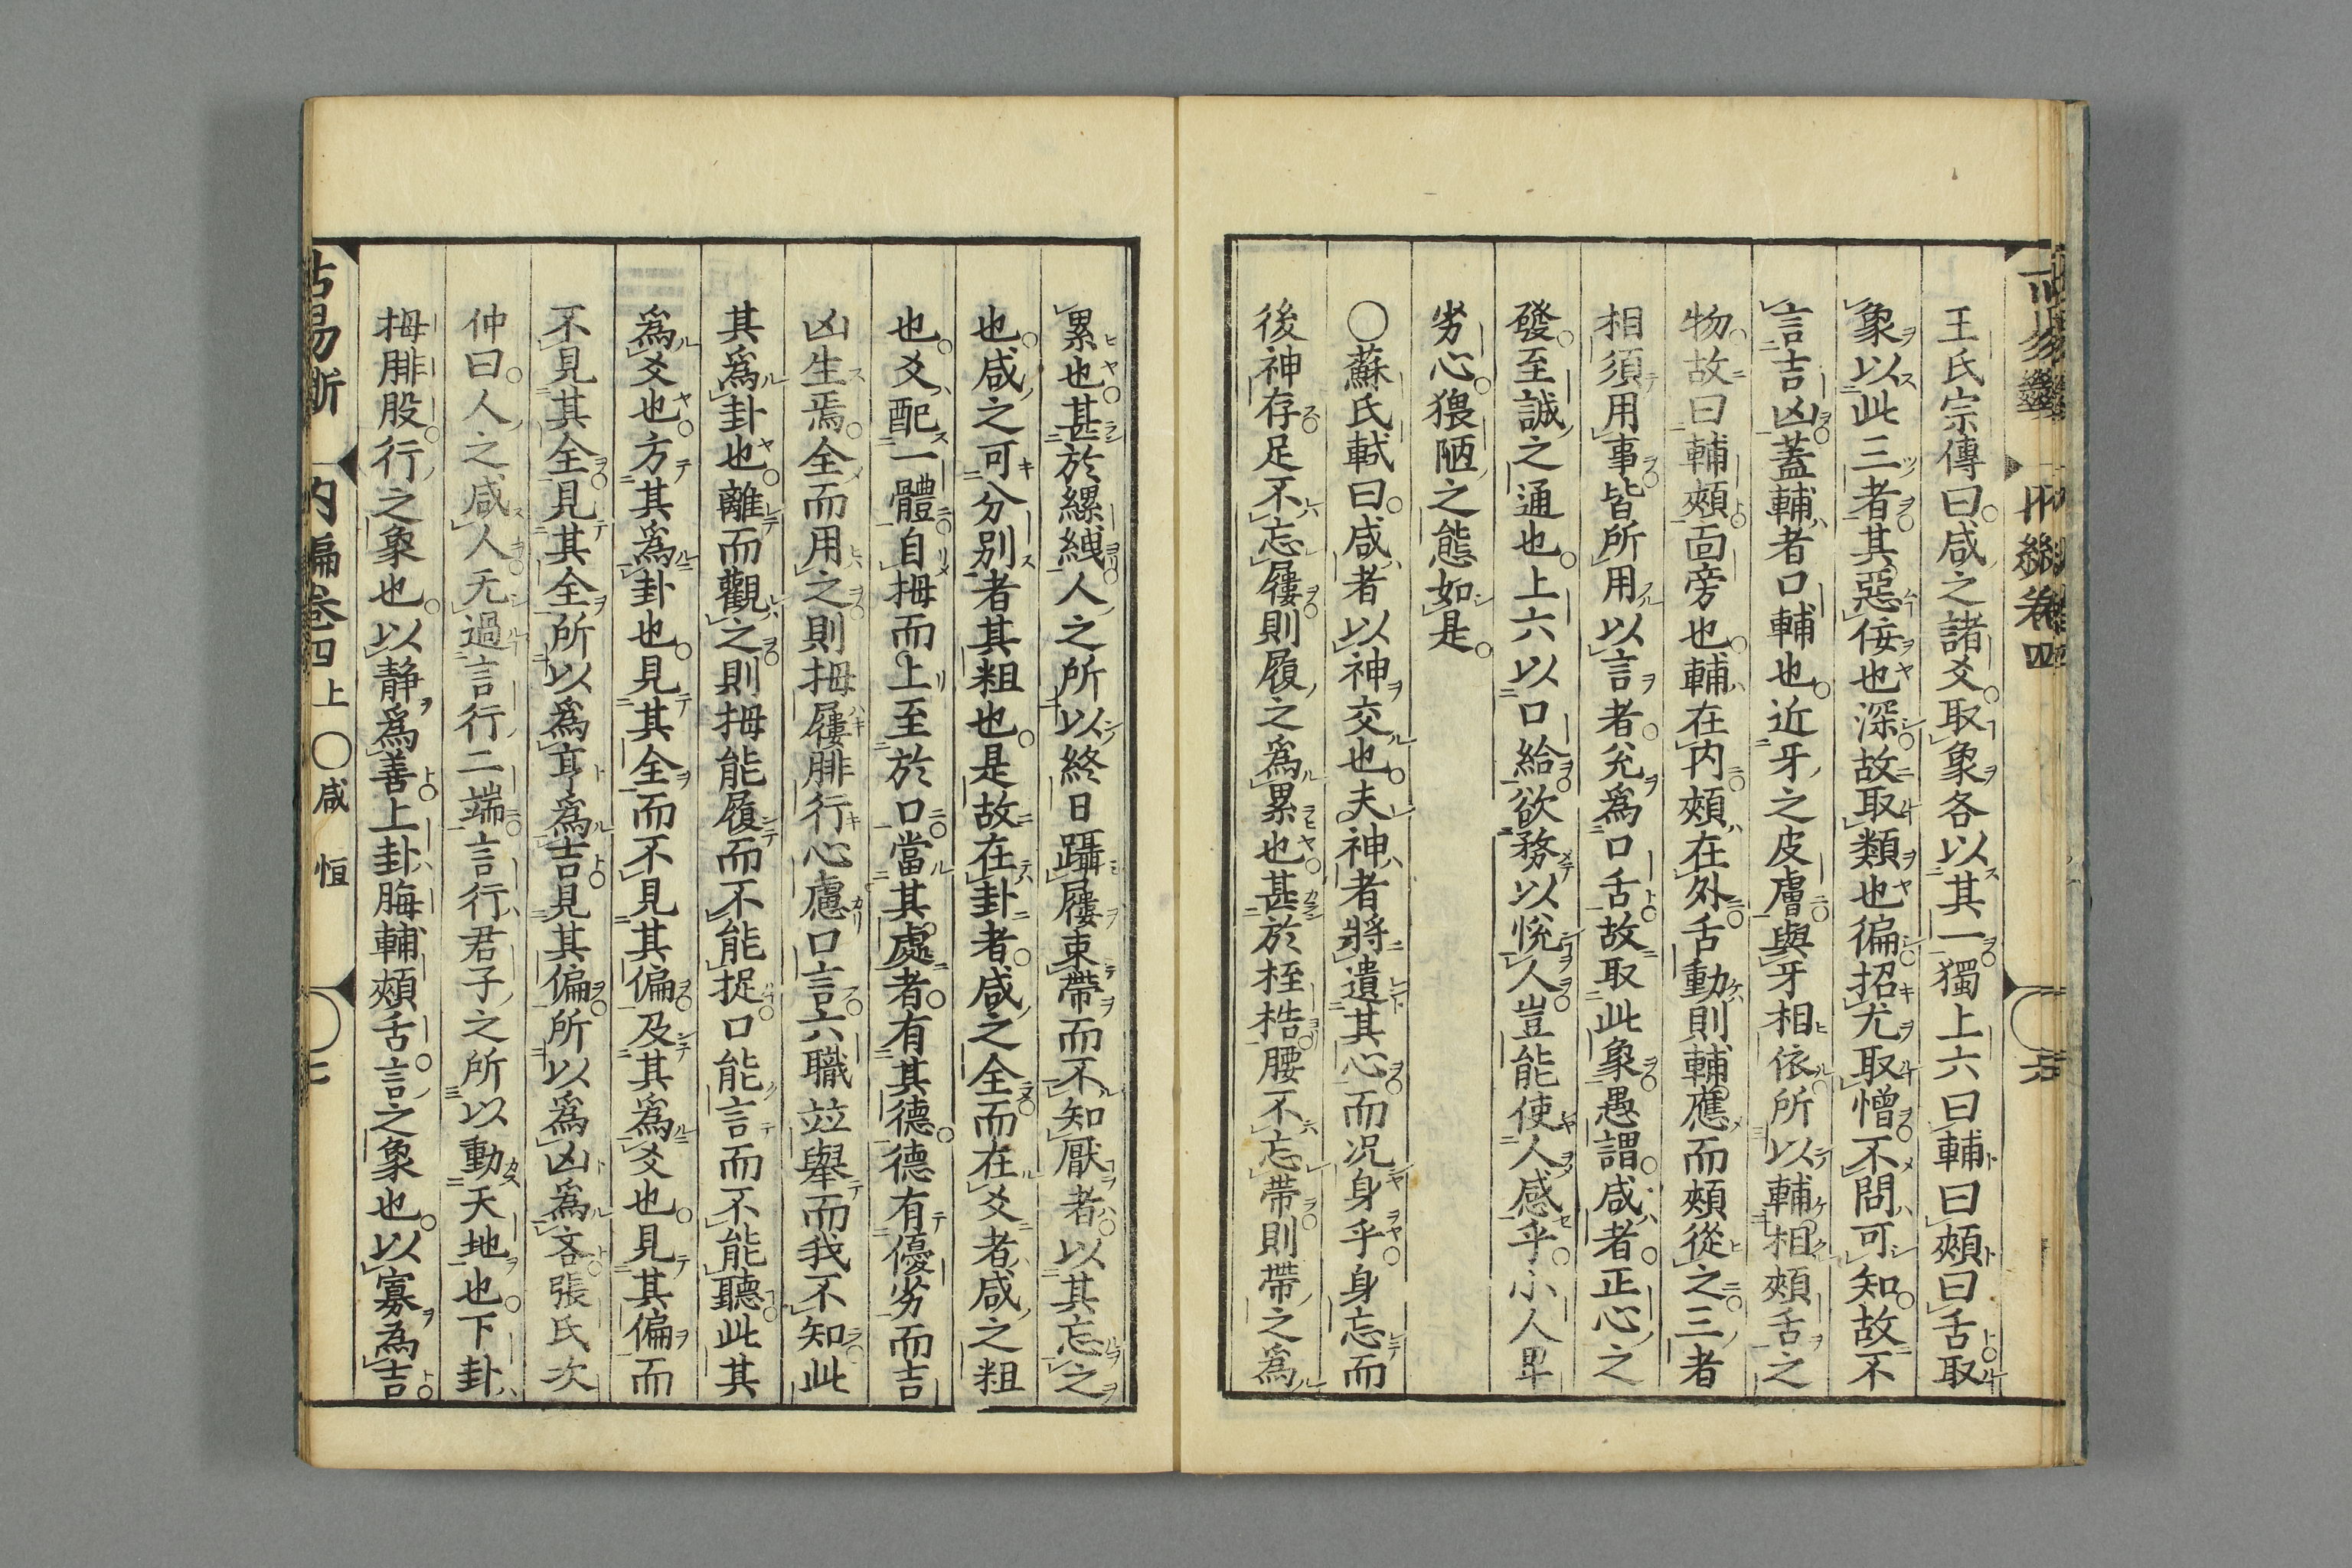 王氏宗傳曰咸之諸爻取象各以其一獨上六曰輔曰頰曰舌取
象以此三者其惡佞也深故取類也偏招尤取憎不問可知故不
言吉凶蓋輔者口輔也近牙之皮膚與牙相依所以輔相頰舌之
物故曰輔頰面旁也輔在内頰在外舌動則輔應而頰從之三者
相須用事皆所用以言者兊為口舌故取此象愚謂咸者正心之
發至誠之通也上六以口給欲務以悅人豈能使人感乎小人卑
劣心猥陋之態如是
〇蘇氏軾曰咸者以神交也夫神者將遺其心而况身乎身忘而
後神存足不忘屨則履之為累也甚於桎梏腰不忘帶則帶之為
累也甚於縲絏人之所以終日躡屨束帶而不知厭者以其忘之
也咸之可分别者其粗也是故在卦者咸之全而在爻者咸之粗
也爻配一體自拇而上至於口當其處者有其德德有優劣而吉
凶生焉全而用之則拇屨腓行心慮口言六職竝舉而我不知此
其為卦也離而觀之則拇能履而不能捉口能言而不能聽此其
為爻也方其為卦也見其全而不見其偏及其為爻也見其偏而
不見其全見其全所以為亨為吉見其偏所以為凶為吝張氏次
仲曰人之咸人无過言行二端言行君子之所以動天地也下卦
拇腓股行之象也以静為善上卦脢輔頰舌言之象也以寡為吉
内編卷四上 〇咸 恒